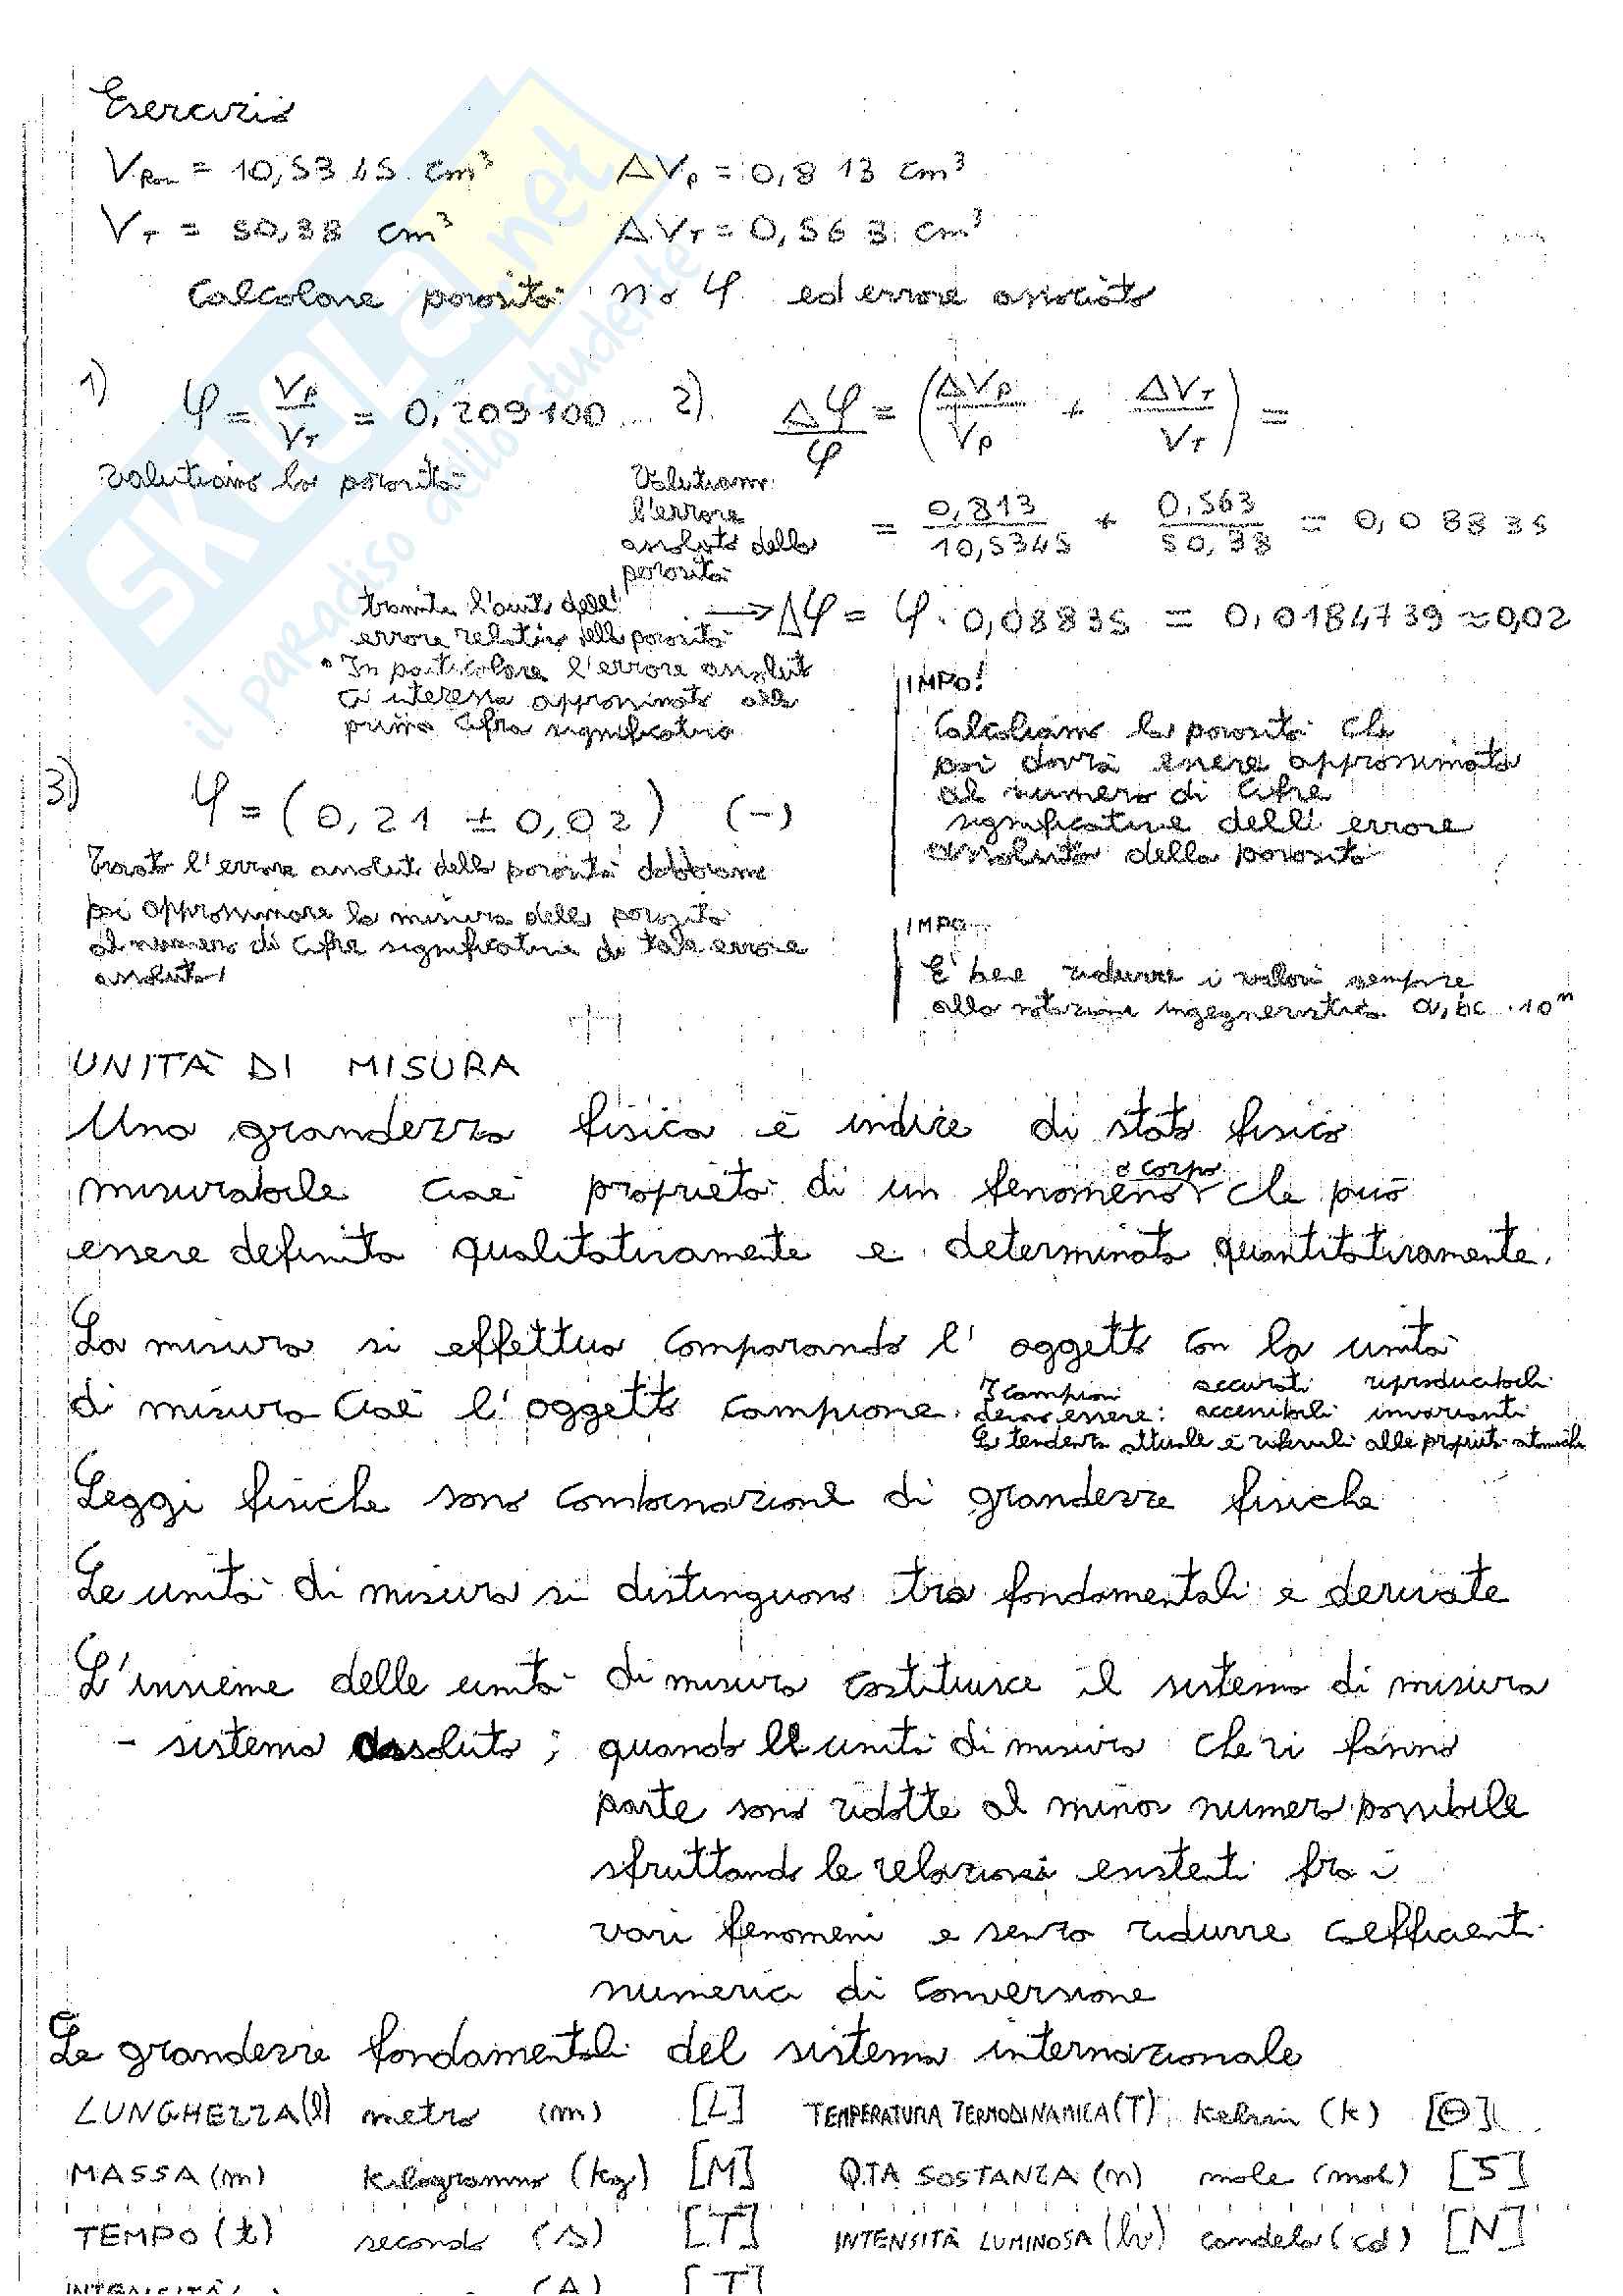 Esercizio
V Por = 10,5345 cm³ ΔVp = 0,813 cm³
V T = 50,38 cm³ ΔVT = 0,563 cm³
Calcolare porosità φ ed errore associato
1) φ = Vp / VT = 0,209100... 2) Δφ / φ = (ΔVp / Vp + ΔVT / VT) =
Valutiamo la porosità
Valutiamo
l'errore
assoluto della
porosità
= 0,813 / 10,5345 + 0,563 / 50,38 = 0,08835
tramite l'aiuto dell'
errore relativo della porosità
→ Δφ = φ · 0,08835 = 0,0184739 ≈ 0,02
• In particolare l'errore assoluto
ci interessa approssimato alla
prima cifra significativa
IMPO!
Calcoliamo la porosità che
poi dovrà essere approssimata
al numero di cifre
significative dell' errore
assoluto della porosità
3) φ = (0,21 ± 0,02) (-)
Trovato l'errore assoluto della porosità dobbiamo
poi approssimare la misura della porosità
al numero di cifre significative di tale errore
assoluto!
IMPO
E' bene ridurre i valori sempre
alla notazione ingegneristica a,bc · 10ⁿ
UNITÀ DI MISURA
Una grandezza fisica è indice di stato fisico
misurabile cioè proprietà di un fenomeno o corpo che può
essere definita qualitativamente e determinata quantitativamente.
La misura si effettua comparando l' oggetto con la unità
di misura cioè l'oggetto campione.
I campioni devono essere: accurati riproducibili
accessibili invarianti
La tendenza attuale è riferirli alle proprietà atomiche
Leggi fisiche sono combinazione di grandezze fisiche
Le unità di misura si distinguono tra fondamentali e derivate
L'insieme delle unità di misura costituisce il sistema di misura
- sistema assoluto; quando le unità di misura che vi fanno
parte sono ridotte al minor numero possibile
sfruttando le relazioni esistenti fra i
vari fenomeni e senza ridurre coefficienti
numerici di conversione
Le grandezze fondamentali del sistema internazionale
LUNGHEZZA (l) metro (m) [L] TEMPERATURA TERMODINAMICA (T) Kelvin (k) [Θ]
MASSA (m) kilogrammo (kg) [M] Q.TA SOSTANZA (n) mole (mol) [S]
TEMPO (t) secondo (s) [T] INTENSITÀ LUMINOSA (lv) candela (cd) [N]
INTENSITÀ (A) [I]
SKUOLA.net
il paradiso dello studente